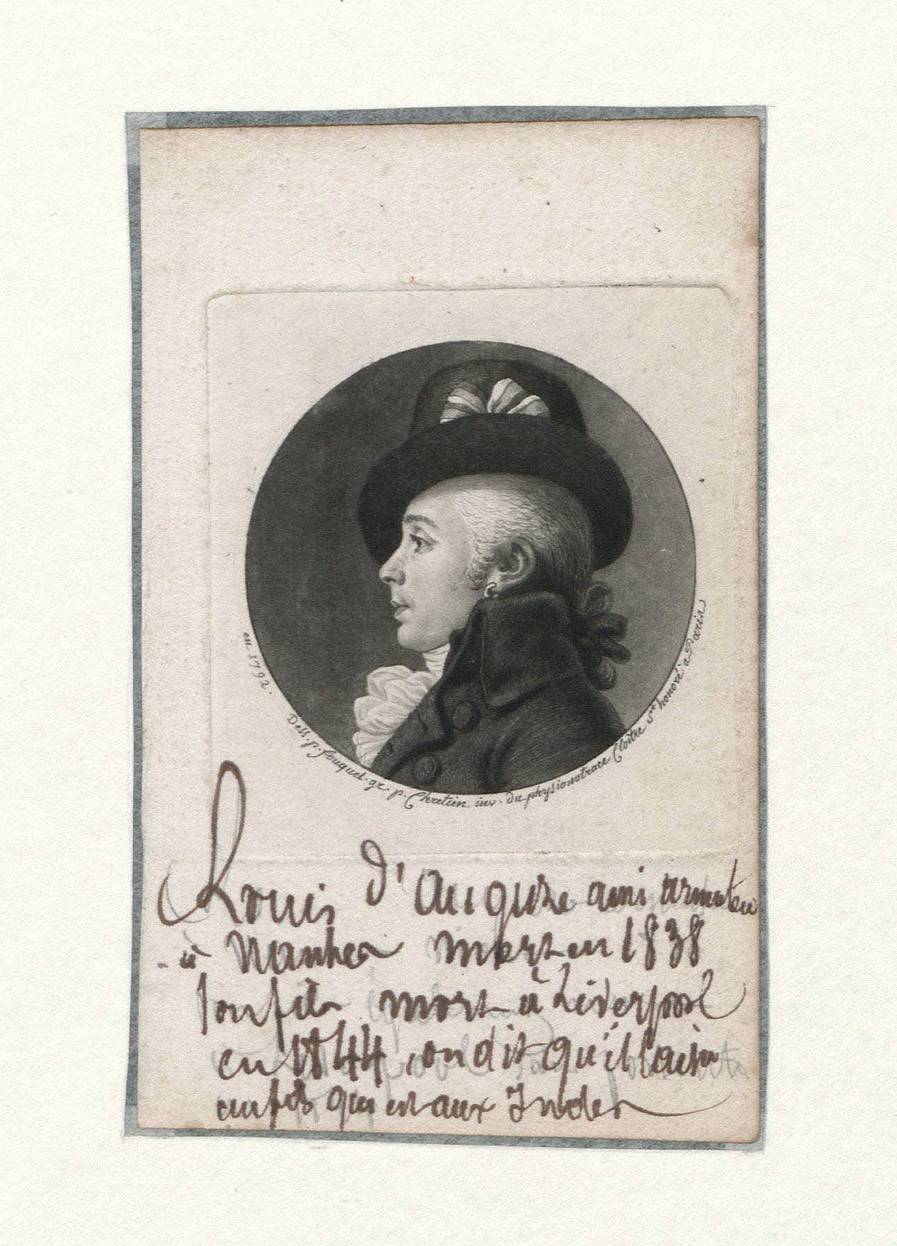 en 1792.
Dess. p. fouquet. gr. p. Chretien inv. du physionotrace Cloître St. honoré a Paris
Louis d' ami armateur
à Nantes mort en 1838
son fils mort à Liverpool
en 1844, on dit qu'il laissa
un fils qui est aux Indes